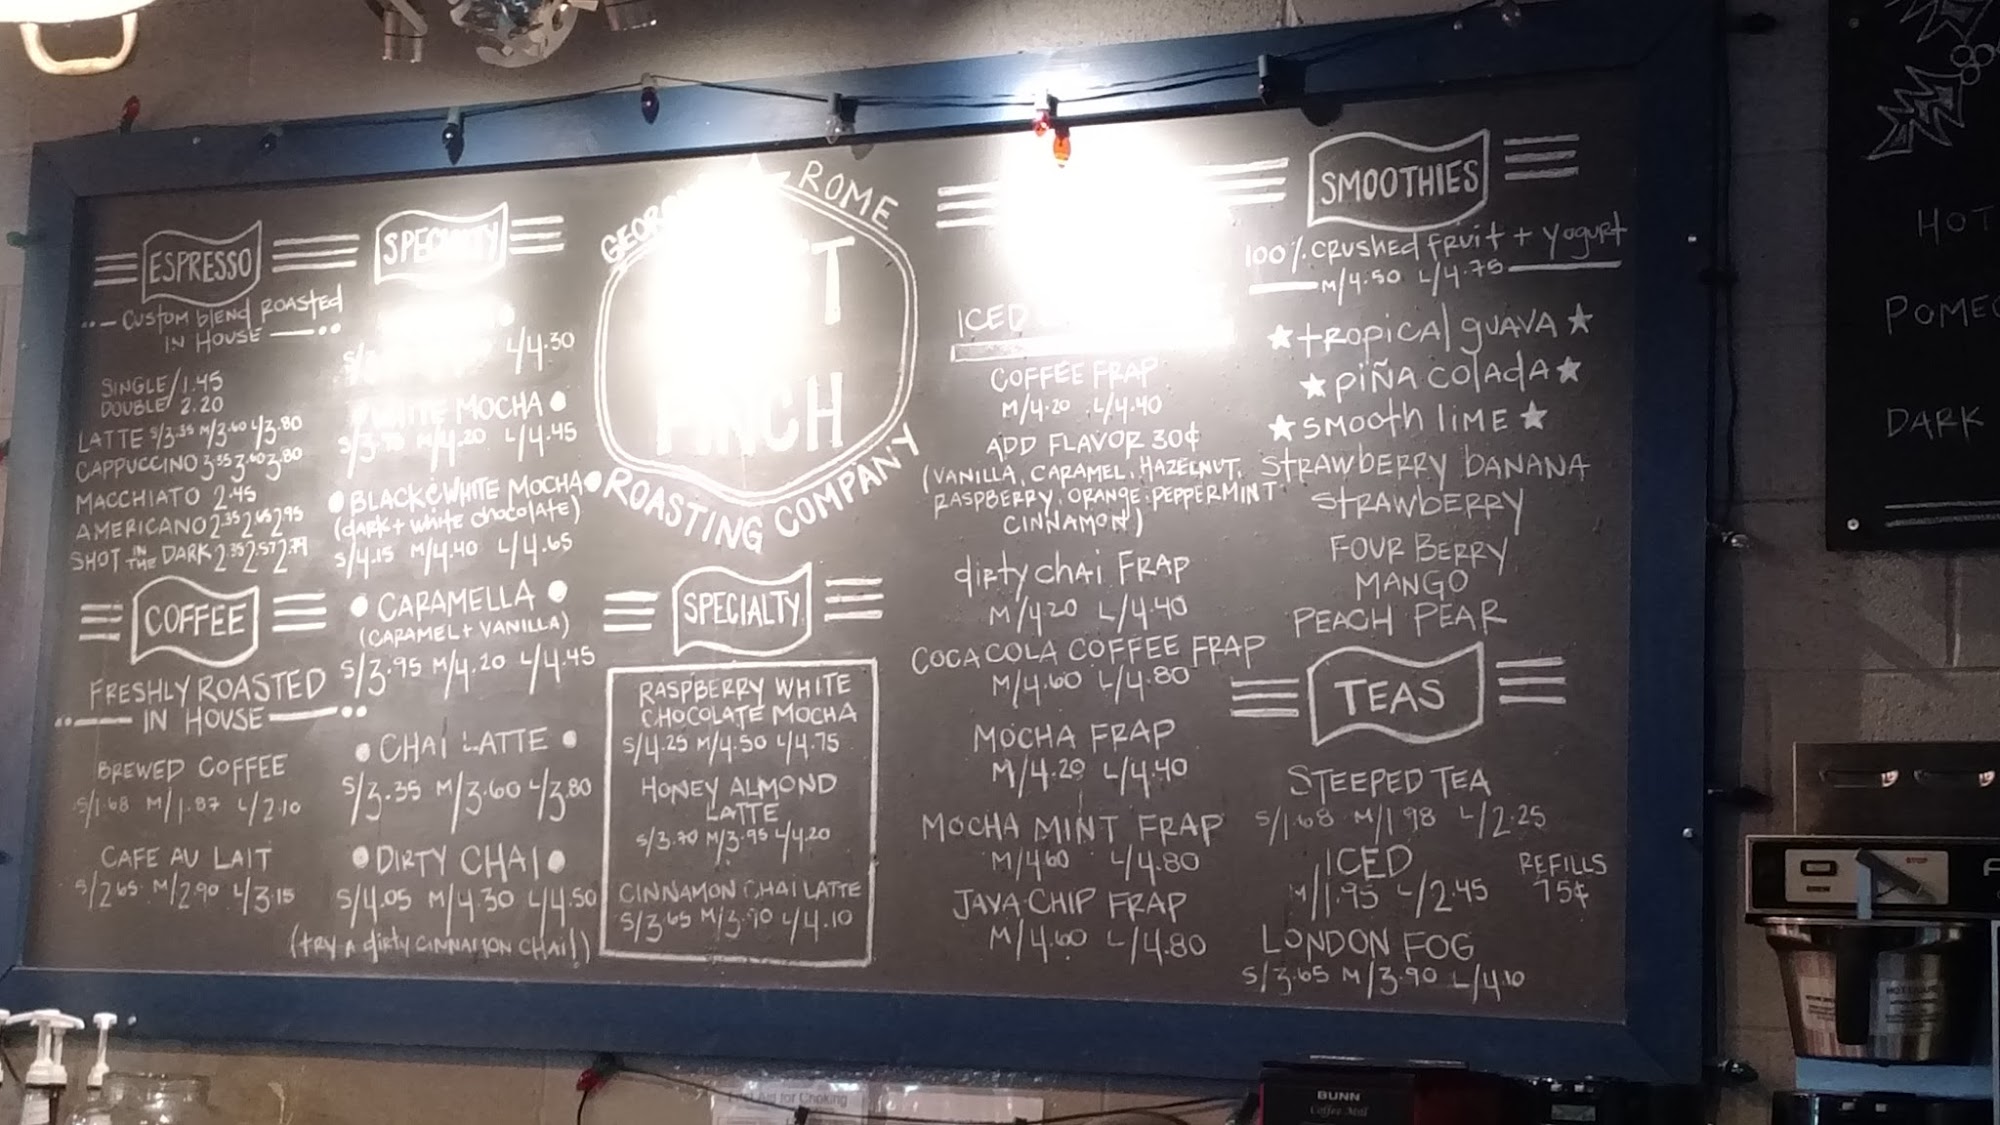 ESPRESSO
CUSTOM BLEND ROASTED
IN HOUSE
SINGLE/1.45
DOUBLE/2.20
LATTE S/3.35 M/3.60 L/3.80
CAPPUCCINO 3.35 3.60 3.80
MACCHIATO 2.45
AMERICANO 2.35 2.65 2.95
SHOT IN THE DARK 2.35 2.57 2.79
COFFEE
FRESHLY ROASTED
IN HOUSE
BREWED COFFEE
S/1.68 M/1.87 L/2.10
CAFE AU LAIT
S/2.65 M/2.90 L/3.15
SPECIALTY
L/4.30
WHITE MOCHA
M/4.20 L/4.45
BLACK & WHITE MOCHA
(dark + white chocolate)
S/4.15 M/4.40 L/4.65
CARAMELLA
(CARAMEL + VANILLA)
S/3.95 M/4.20 L/4.45
CHAI LATTE
S/3.35 M/3.60 L/3.80
DIRTY CHAI
S/4.05 M/4.30 L/4.50
(TRY A dirty CINNAMON CHAI!)
ROME
FINCH
ROASTING COMPANY
SPECIALTY
RASPBERRY WHITE
CHOCOLATE MOCHA
S/4.25 M/4.50 L/4.75
HONEY ALMOND
LATTE
S/3.70 M/3.95 L/4.20
CINNAMON CHAI LATTE
S/3.65 M/3.90 L/4.10
ICED
COFFEE FRAP
M/4.20 L/4.40
ADD FLAVOR 30¢
(VANILLA, CARAMEL, HAZELNUT,
RASPBERRY, ORANGE, PEPPERMINT
CINNAMON)
dirty chai FRAP
M/4.20 L/4.40
COCA COLA COFFEE FRAP
M/4.60 L/4.80
MOCHA FRAP
M/4.20 L/4.40
MOCHA MINT FRAP
M/4.60 L/4.80
JAVA CHIP FRAP
M/4.60 L/4.80
SMOOTHIES
100% CRUSHED FRUIT + YOGURT
M/4.50 L/4.75
TROPICAL GUAVA
PIÑA COLADA
SMOOTH LIME
STRAWBERRY BANANA
STRAWBERRY
FOUR BERRY
MANGO
PEACH PEAR
TEAS
STEEPED TEA
S/1.68 M/1.98 L/2.25
ICED
M/1.95 L/2.45
REFILLS
75¢
LONDON FOG
S/3.65 M/3.90 L/4.10
HOT
DARK
BREW
STOP
BUNN
Coffee Mill